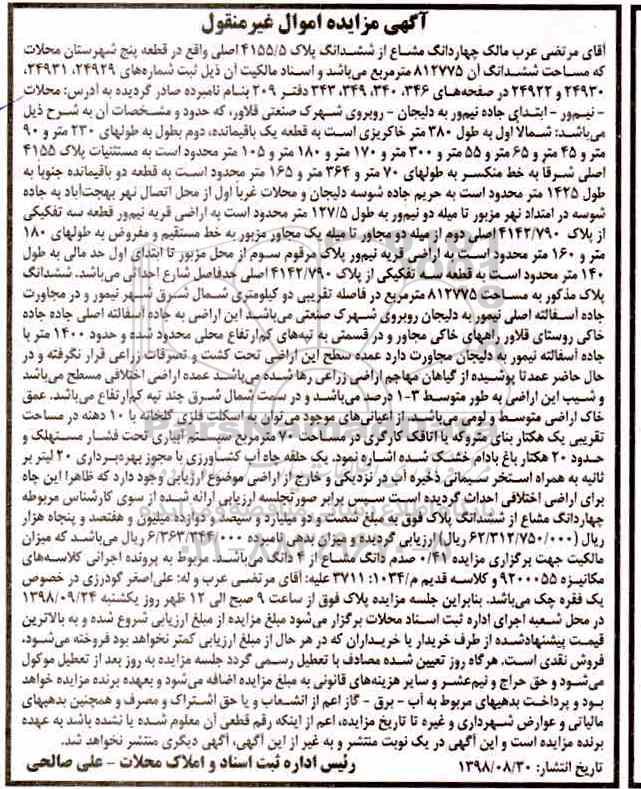 آگهی مزایده اموال غیرمنقول
آقای مرتضی عرب مالک چهاردانگ مشاع از ششدانگ پلاک ۴۱۵۵/۵ اصلی واقع در قطعه پنج شهرستان محلات
که مساحت ششدانگ آن ۸۱۲۷۷۵ مترمربع می‌باشد و اسناد مالکیت آن ذیل ثبت شماره‌های ۲۴۹۲۹، ۲۴۹۳۱،
۲۴۹۳۰ و ۲۴۹۲۲ در صفحه‌های ۳۴۶، ۳۴۰، ۳۴۹، ۳۴۳ دفتر ۲۰۹ بنام نامبرده صادر گردیده به آدرس: محلات
- نیم‌ور - ابتدای جاده نیم‌ور به دلیجان - روبروی شهرک صنعتی قلاور، که حدود و مشخصات آن به شرح ذیل
می‌باشد: شمالا اول به طول ۳۸۰ متر خاکریزی است به قطعه یک باقیمانده، دوم بطول به طولهای ۲۳۰ متر و ۹۰
متر و ۴۵ متر و ۶۵ متر و ۵۵ متر و ۳۰۰ متر و ۱۷۰ متر و ۱۸۰ متر و ۱۰۵ متر محدود است به مستثنیات پلاک ۴۱۵۵
اصلی شرقا به خط منکسر به طولهای ۷۰ متر و ۳۶۴ متر و ۱۶۵ متر محدود است به قطعه دو باقیمانده جنوبا به
طول ۱۴۲۵ متر محدود است به حریم جاده شوسه دلیجان و محلات غربا اول از محل اتصال نهر بهجت‌آباد به جاده
شوسه در امتداد نهر مزبور تا میله دو نیم‌ور به طول ۱۲۷/۵ متر محدود است به اراضی قریه نیم‌ور قطعه سه تفکیکی
از پلاک ۴۱۴۲/۷۹۰ اصلی دوم از میله دو مجاور تا میله یک مجاور مزبور به خط مستقیم و مفروض به طولهای ۱۸۰
متر و ۱۶۰ متر محدود است به اراضی قریه نیم‌ور پلاک مرقوم سوم از محل مزبور تا ابتدای اول حد مالی به طول
۱۴۰ متر محدود است به قطعه سه تفکیکی از پلاک ۴۱۴۲/۷۹۰ اصلی حدفاصل شارع احداثی می‌باشد. ششدانگ
پلاک مذکور به مساحت ۸۱۲۷۷۵ مترمربع در فاصله تقریبی دو کیلومتری شمال شرق شهر نیمور و در مجاورت
جاده آسفالته اصلی نیمور به دلیجان روبروی شهرک صنعتی می‌باشد این اراضی به جاده آسفالته اصلی جاده جاده
خاکی روستای قلاور راههای خاکی مجاور و در قسمتی به تپه‌های کم‌ارتفاع محلی محدود شده و حدود ۱۴۰۰ متر با
جاده آسفالته نیمور به دلیجان مجاورت دارد عمده سطح این اراضی تحت کشت و تصرفات زراعی قرار نگرفته و در
حال حاضر عمدتا پوشیده از گیاهان مهاجم اراضی زراعی رها شده می‌باشند عمده اراضی اختلافی مسطح می‌باشد
و شیب این اراضی به طور متوسط ۳-۱ درصد می‌باشد و در سمت شمال شرق چند تپه کم‌ارتفاع می‌باشد. عمق
خاک اراضی متوسط و لومی می‌باشد. از اعیانی‌های موجود می‌توان به اسکلت فلزی گلخانه با ۱۰ دهنه در مساحت
تقریبی یک هکتار بنای متروکه یا اتاقک کارگری در مساحت ۷۰ مترمربع سیستم آبیاری تحت فشار مستهلک و
حدود ۲۰ هکتار باغ بادام خشک شده اشاره نمود. یک حلقه چاه آب کشاورزی با مجوز بهره‌برداری ۲۰ لیتر بر
ثانیه به همراه استخر سیمانی ذخیره آب در نزدیکی و خارج از اراضی موضوع ارزیابی وجود دارد که ظاهرا این چاه
برای اراضی اختلافی احداث گردیده است سپس برابر صورتجلسه ارزیابی ارائه شده از سوی کارشناس مربوطه
چهاردانگ مشاع از ششدانگ پلاک فوق به مبلغ شصت و دو میلیارد و سیصد و دوازده میلیون و هفتصد و پنجاه هزار
ریال (۶۲/۳۱۲/۷۵۰/۰۰۰ ریال) ارزیابی گردیده و میزان بدهی نامبرده ۶/۳۶۳/۳۴۴/۰۰۰ ریال می‌باشد که میزان
مالکیت جهت برگزاری مزایده ۰/۴۱ صدم دانگ مشاع از ۴ دانگ می‌باشد. مربوط به پرونده اجرائی کلاسه‌های
مکانیزه ۹۲۰۰۰۵۵ و کلاسه قدیم م/۱۰۳۴: ۳۷۱۱ علیه: آقای مرتضی عرب و له: علی‌اصغر گودرزی در خصوص
یک فقره چک می‌باشد. بنابراین جلسه مزایده پلاک فوق از ساعت ۹ صبح الی ۱۲ ظهر روز یکشنبه ۱۳۹۸/۰۹/۲۴
در محل شعبه اجرای اداره ثبت اسناد محلات برگزار می‌شود مبلغ مزایده از مبلغ ارزیابی شروع شده و به بالاترین
قیمت پیشنهادشده از طرف خریدار یا خریداران که در هر حال از مبلغ ارزیابی کمتر نخواهد بود فروخته می‌شود،
فروش نقدی است. هرگاه روز تعیین شده مصادف با تعطیل رسمی گردد جلسه مزایده به روز بعد از تعطیل موکول
می‌شود و حق حراج و نیم‌عشر و سایر هزینه‌های قانونی به مبلغ مزایده اضافه می‌شود و بعهده برنده مزایده خواهد
بود و پرداخت بدهیهای مربوط به آب - برق - گاز اعم از انشعاب و یا حق اشتراک و مصرف و همچنین بدهیهای
مالیاتی و عوارض شهرداری و غیره تا تاریخ مزایده، اعم از اینکه رقم قطعی آن معلوم شده یا نشده باشد به عهده
برنده مزایده است و این آگهی در یک نوبت منتشر و به غیر از این آگهی، آگهی دیگری منتشر نخواهد شد.
تاریخ انتشار: ۱۳۹۸/۰۸/۳۰ رئیس اداره ثبت اسناد و املاک محلات - علی صالحی